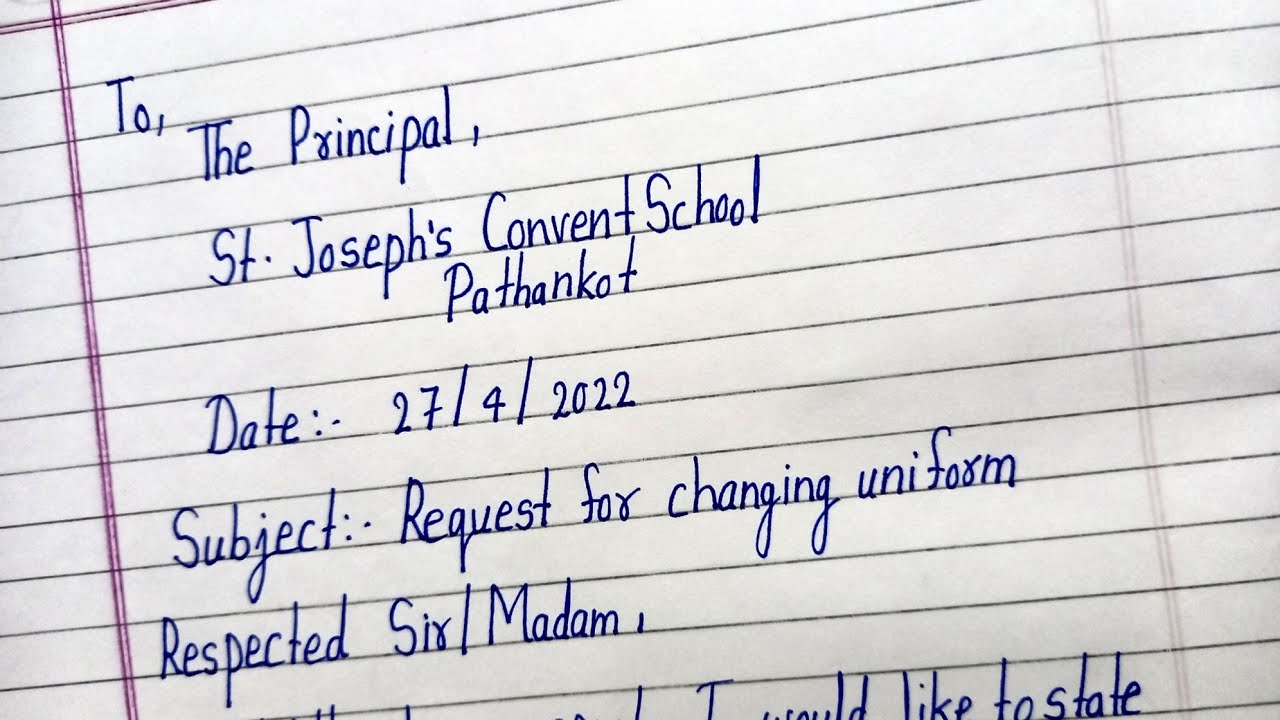 To,
The Principal,
St. Joseph's Convent School
Pathankot
Date:- 27/4/2022
Subject:- Request for changing uniform
Respected Sir/Madam,
I would like to state